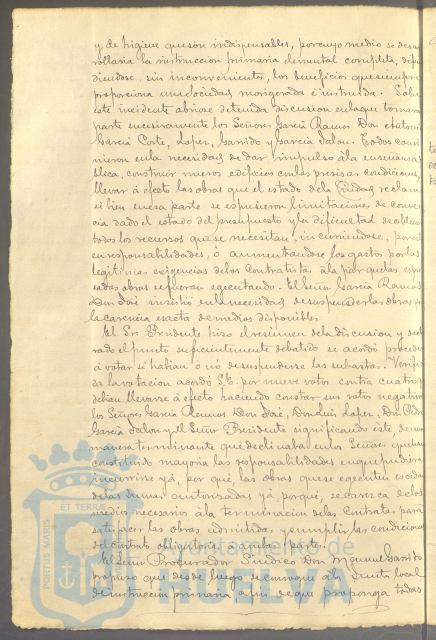 y de higiene que son indispensables, por cuyo medio se desa
rollaria la instruccion primaria elemental completa, difun
diendose, sin inconvenientes, los beneficios que siempre
proporciona una Sociedad morigerada é instruida. Sobre
este incidente abriose detenida discusion en la que tomaron
parte sucesivamente los Señores Garcia Ramos Don Antonio
Garcia Corte, Lopez, Garrido y Garcia Jalon. Todos convi
nieron en la necesidad de dar impulso á la enseñanza pú
blica, construir nuevos edificios con las precisas condiciones,
llevar á efecto las obras que el estado de la Ciudad reclama
si bien en esa parte se expusieron limitaciones de conven
cia dado el estado del presupuesto y la dificultad de obtener
todos los recursos que se necesitan, incurriendose, por
en responsabilidades, ó aumentandose los gastos por las
legitimas exigencias de los Contratistas á la par que las expre
sadas obras se fueran egecutando. El Señor Garcia Ramos
Don José insistió en la necesidad de suspender las obras por
la carencia exacta de medios disponibles.
El Sr. Presidente hizo el resumen de la discusion y decla
rado el punto suficientemente debatido se acordó proceder
á votar si habian ó no de suspenderse las subastas. Verifica
da la votacion acordó S.E. por nueve votos contra cuatro
debian llevarse á efecto haciendo constar sus votos negativos
los Señores Garcia Ramos Don José, Don Luis Lopez, Don Pedro
Garcia Jalon y el Señor Presidente significando este, de una
manera terminante que declinaba en los Señores que han
constituido mayoria las responsabilidades en que pudiera
incurrirse yá, por que, las obras que se egecuten escedan
de las sumas autorizadas yá porque, se carezca de los
medios necesarios á la terminacion de las Contratas para
satisfacer las obras admitidas y cumplir las condiciones
del contrato obligatorio á ambas partes.
El Señor Procurador Sindico Don Manuel Garrido
propuso que desde luego se convoque á la Junta local
de instruccion primaria á fin de que proponga todas
PORTUS MARIS
ET TERRAE
Ayuntamiento de
HUELVA